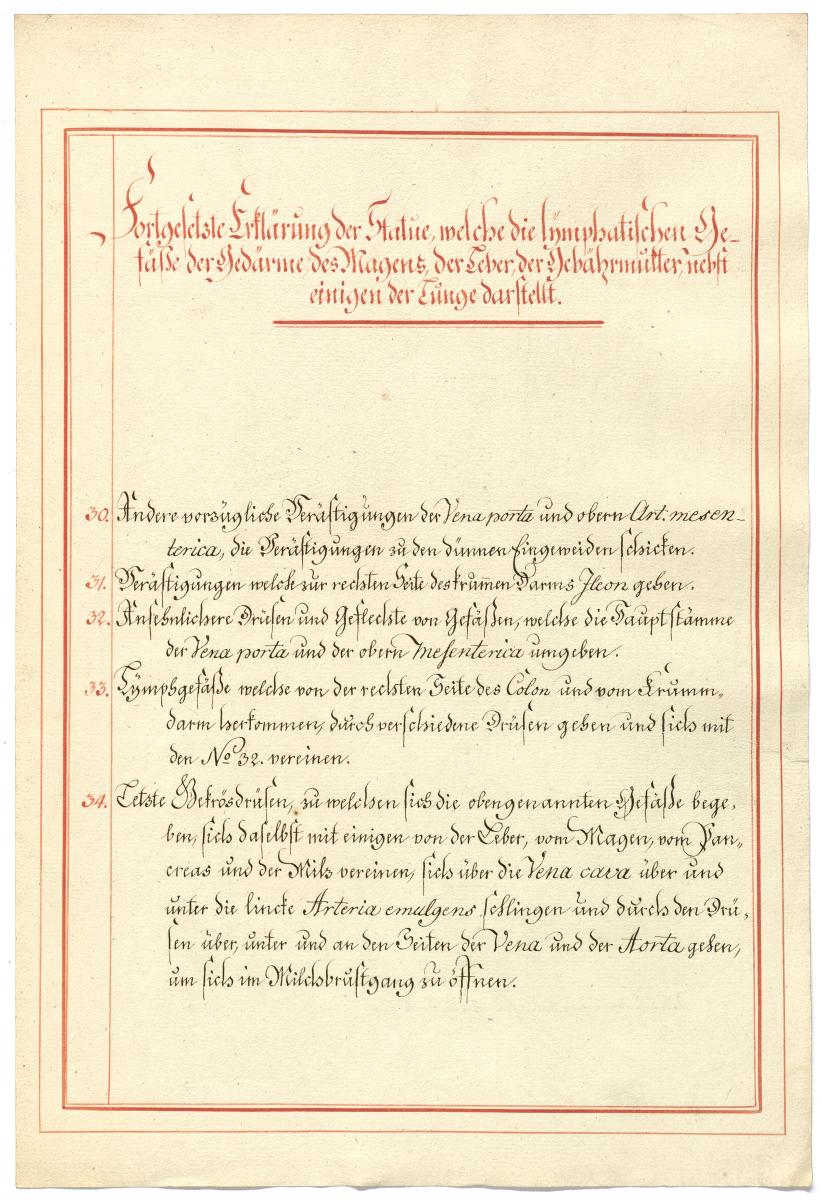 Fortgesetzte Erklärung der Statue, welche die lÿmphatischen Ge-
fäße der Gedärme, des Magens, der Leber, der Gebährmutter, nebst
einigen der Lunge darstellt.
30. Andere vorzügliche Verästigungen der Vena porta und obern Art. mesen-
terica, die Verästigungen zu den dünnen Eingeweiden schicken.
31. Verästigungen welche zur rechten Seite des krum̅en Darms Jleon gehen.
32. Ansehnlichere Drüsen und Geflechte von Gefäßen, welche die Hauptstämme
der Vena porta und der obern Mesenterica umgeben.
33. Lÿmphgefäße welche von der rechten Seite des Colon und vom Krumm-
darm herkommen, durch verschiedene Drüsen gehen und sich mit
den No 32. vereinen.
34. Letzte Gekrösdrüsen, zu welchen sich die obengenannten Gefäße bege-
ben, sich daselbst mit einigen von der Leber, vom Magen, vom Pan-
creas und der Milz vereinen, sich über die Vena cava über und
unter die lincke Arteria emulgens schlingen und durch den Drü-
sen über, unter und an den Seiten der Vena und der Aorta gehen,
um sich im Milchbrustgang zu öffnen.